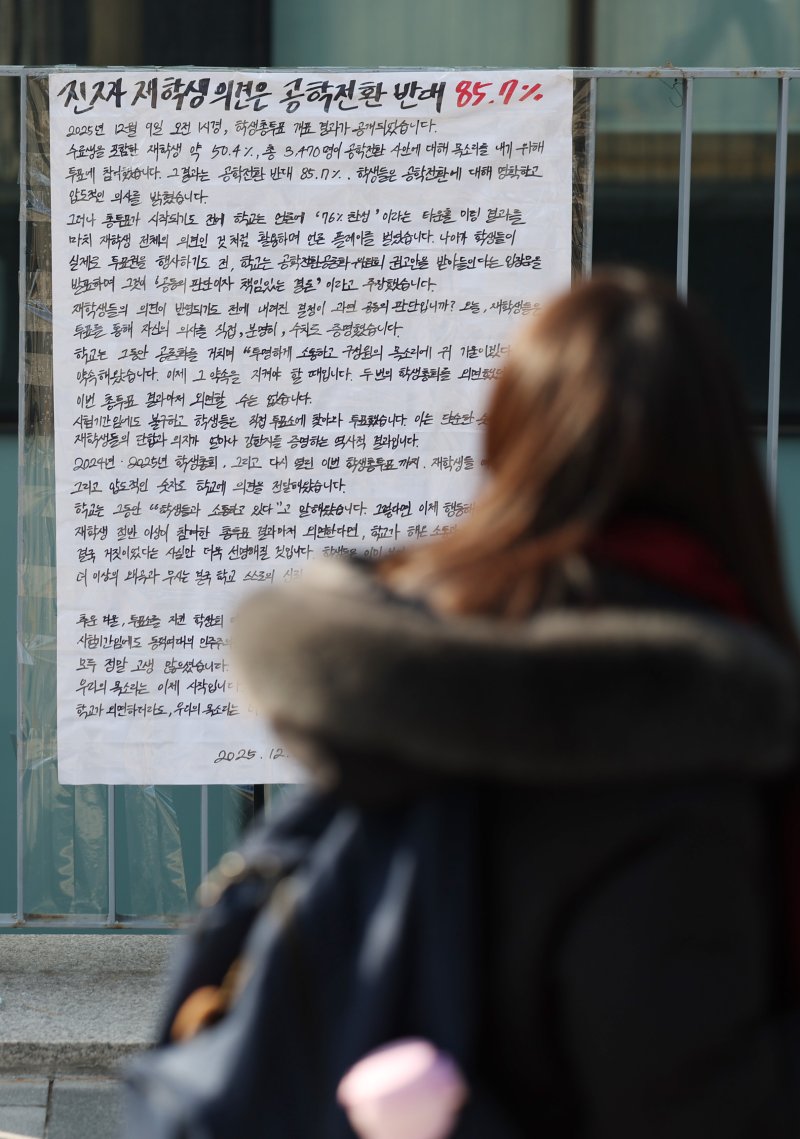 진짜 재학생 의견은 공학전환 반대 85.7%
2025년 12월 9일 오전 1시경, 학생총투표 개표 결과가 공개되었습니다.
수료생을 포함한 재학생 약 50.4%, 총 3,470명이 공학전환 사안에 대해 목소리를 내기 위해
투표에 참여했습니다. 그 결과는 공학전환 반대 85.7%. 학생들은 공학전환에 대해 명확하고
압도적인 의사를 밝혔습니다.
그러나 총투표가 시작되기도 전에 학교는 언론에 '76% 찬성' 이라는 타운홀 미팅 결과를
마치 재학생 전체의 의견인 것처럼 활용하며 언론 플레이를 벌였습니다. 나아가 학생들이
실제로 투표권을 행사하기도 전, 학교는 공학전환공론화 위원회 권고안을 받아들인다는 입장문을
발표하며 그것이 '공동의 판단이자 책임있는 결론' 이라고 주장했습니다.
재학생들의 의견이 반영되기도 전에 내려진 결정이 과연 공동의 판단입니까? 오늘, 재학생들은
투표를 통해 자신의 의사를 직접, 분명히, 수치로 증명했습니다.
학교는 그동안 공론화를 거치며 "투명하게 소통하고 구성원의 목소리에 귀 기울이겠다
약속해왔습니다. 이제 그 약속을 지켜야 할 때입니다. 두 번의 학생총회를 외면했던
이번 총투표 결과마저 외면할 수는 없습니다.
시험기간임에도 불구하고 학생들은 직접 투표소에 찾아가 투표했습니다. 이는 단순한
재학생들의 단합과 의지가 얼마나 강한지를 증명하는 역사적 결과입니다.
2024년·2025년 학생총회, 그리고 다시 열린 이번 학생총투표까지. 재학생들
그리고 압도적인 숫자로 학교에 의견을 전달해왔습니다.
학교는 그동안 "학생들과 소통하고 있다"고 말해왔습니다. 그렇다면 이제 행동해
재학생 절반 이상이 참여한 총투표 결과마저 외면한다면, 학교가 해온
결국 거짓이었다는 사실만 더욱 선명해질 것입니다. 학생들은 이미
더 이상의 왜곡과 무시는 결국 학교 스스로의
추운 겨울, 투표소를 지킨 학생회
시험기간임에도 동덕여대의 민주주의
모두 정말 고생 많으셨습니다.
우리의 목소리는 이제 시작입니다
학교가 외면하더라도, 우리의 목소리는
2025.12.